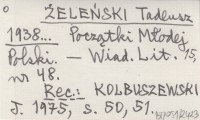 ŻELEŃSKI Tadeusz
1938... Początki Młodej
Polski. — Wiad. Lit. 15,
nr 48.
Rec.: KOLBUSZEWSKI
J. 1975, s. 50, 51.